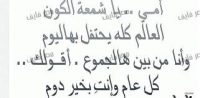 أمـي .. يا شمعة الكون
العالم كله يحتفل بهاليوم
وأنا من بين هالجموع . أقولك ..
كل عام وأنتِ بخير دوم